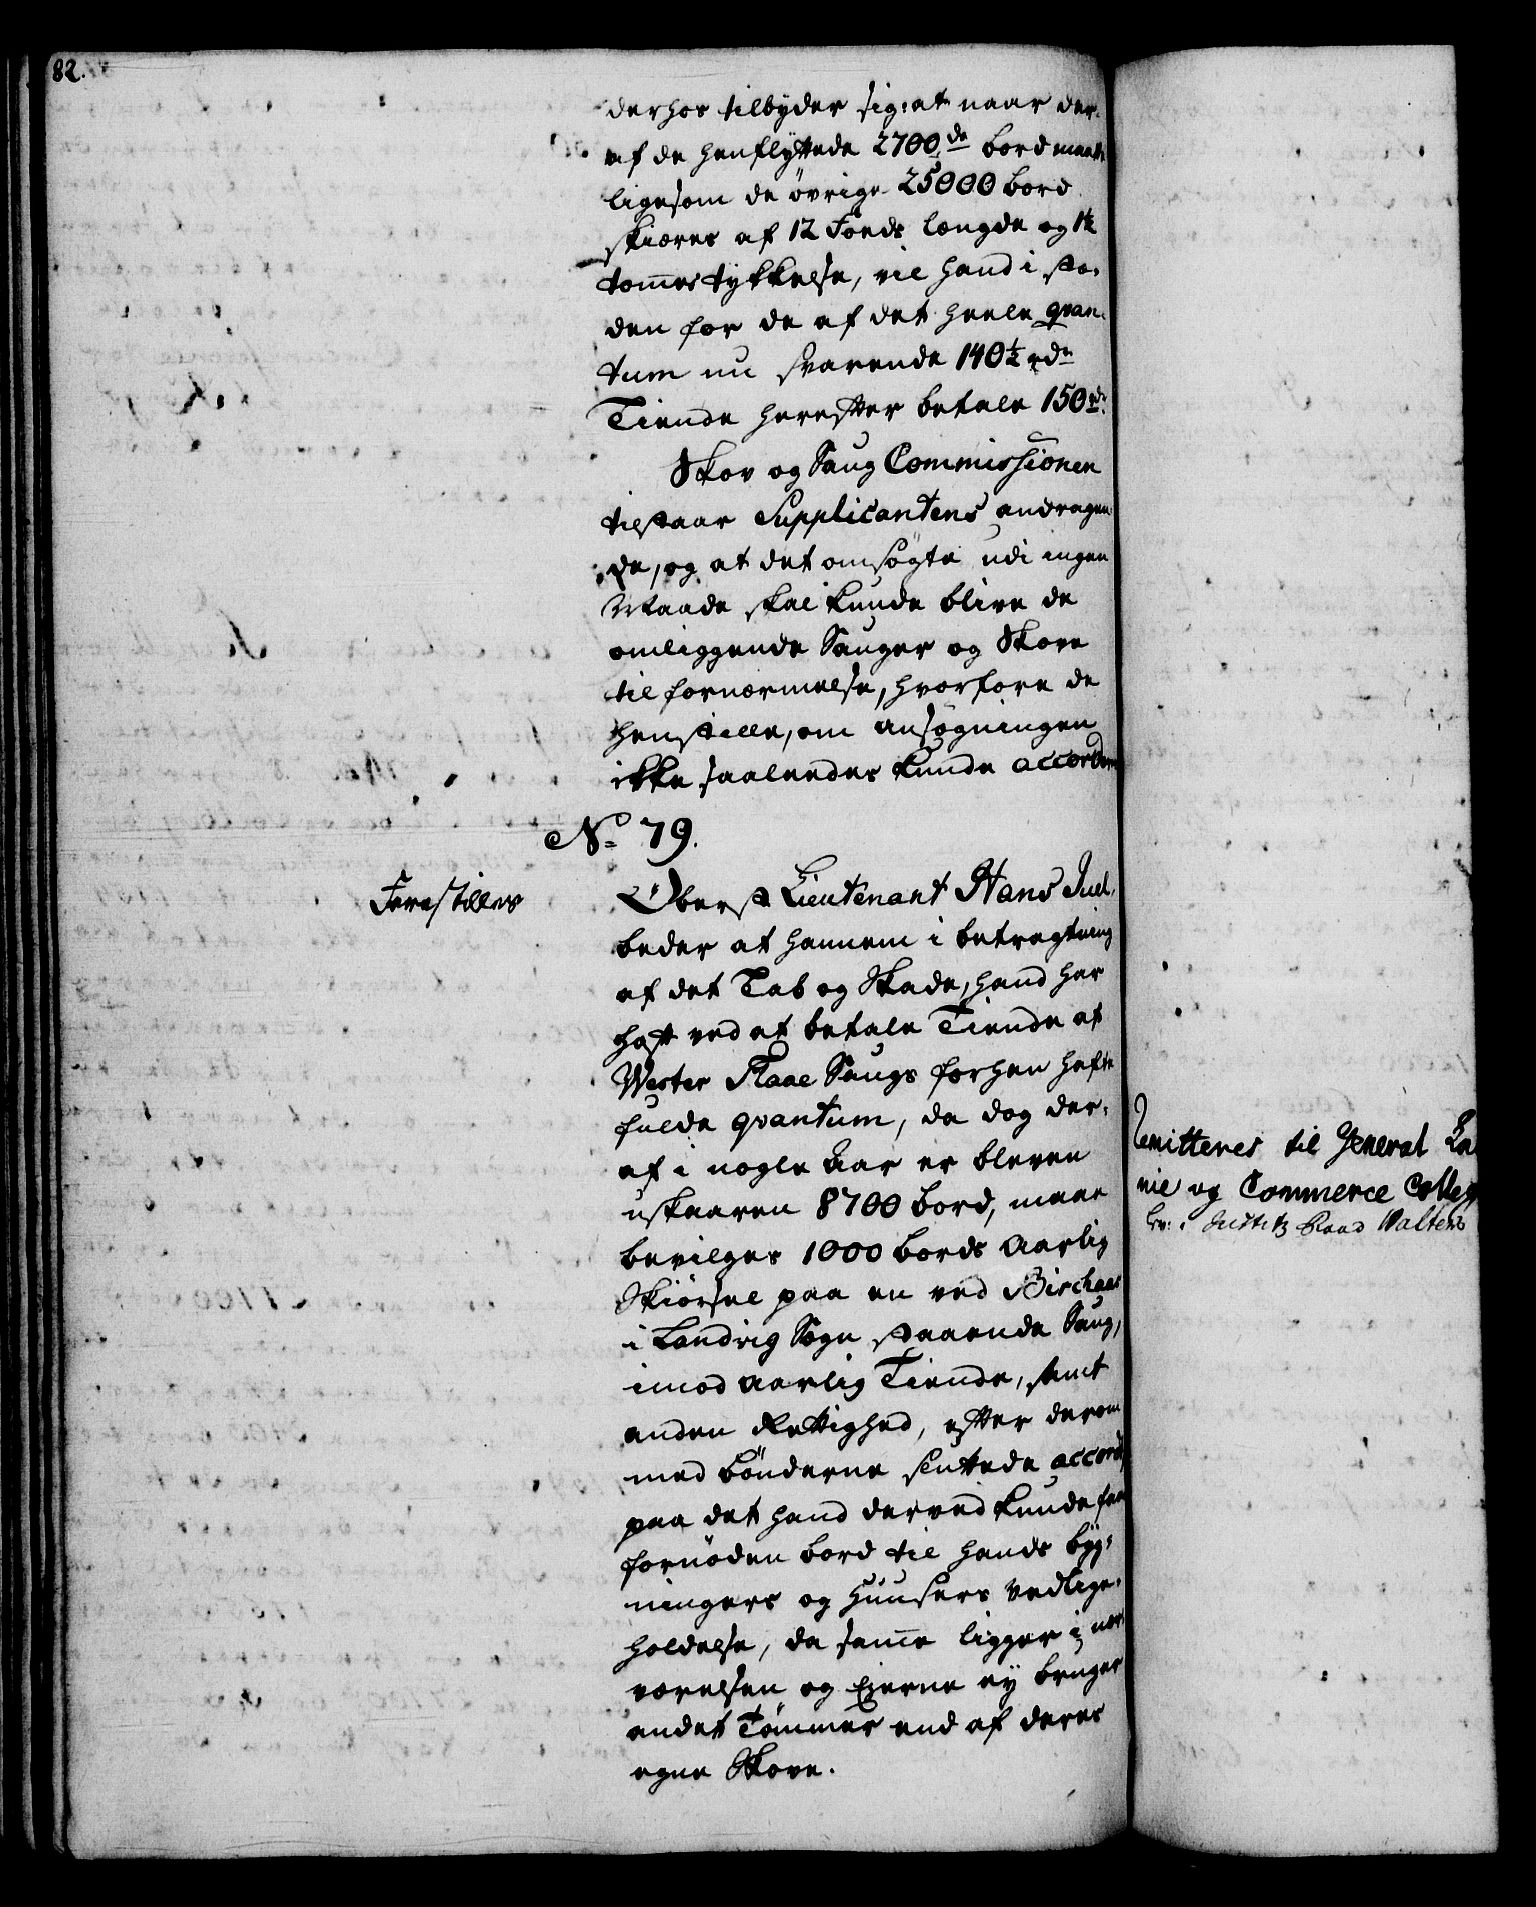 82.
derhos tilbyder sig: at naar der-
af de henflyttede 2700de bord maatte
ligesom de övrige 25000 bord
skiæres af 12 Foeds længde og 1½
tommes tykkelse, vil hand i stæ-
den for de af det heele qvan-
tum nu svarende 140½ rdr
Tiende herefter betale 150 rdr.
Skov og Saug Commissionen
tilstaar Supplicantens andragen-
de, og at det omsögte udi ingen
Maade skal kunde blive de
omliggende Sauger og Skove
til fornærmelse, hvorfore de
henstille, om ansögningen
ikke saaleedes kunde accorderes
No 79.
Forestilles
Oberst Lieutenant Hans Juel
beder at hannem i betragtning
af det Tab og Skade, hand har
haft ved at betale Tiende af
Wester Aaae Saugs forhen hafte
fulde qvantum, da dog der-
af i nogle Aar er bleven
uskaaren 8700 bord, maae
bevilges 1000 bords Aarlig
Skiörsel paa en ved Birchaas
i Landvig Sogn staaende Saug,
imod aarlig Tiende, samt
anden Rettighed, efter derom
med bönderne sluttede accord,
paa det hand derved kunde faae
fornöden bord til hands byg-
ningers og Huusers vedlige-
holdelse, da samme ligger i nær-
værelsen og Eierne ey bruger
andet Tömmer end af deres
egne Skove.
Remitteres til General
og Commerce Colleg
Justitz Raad Walters